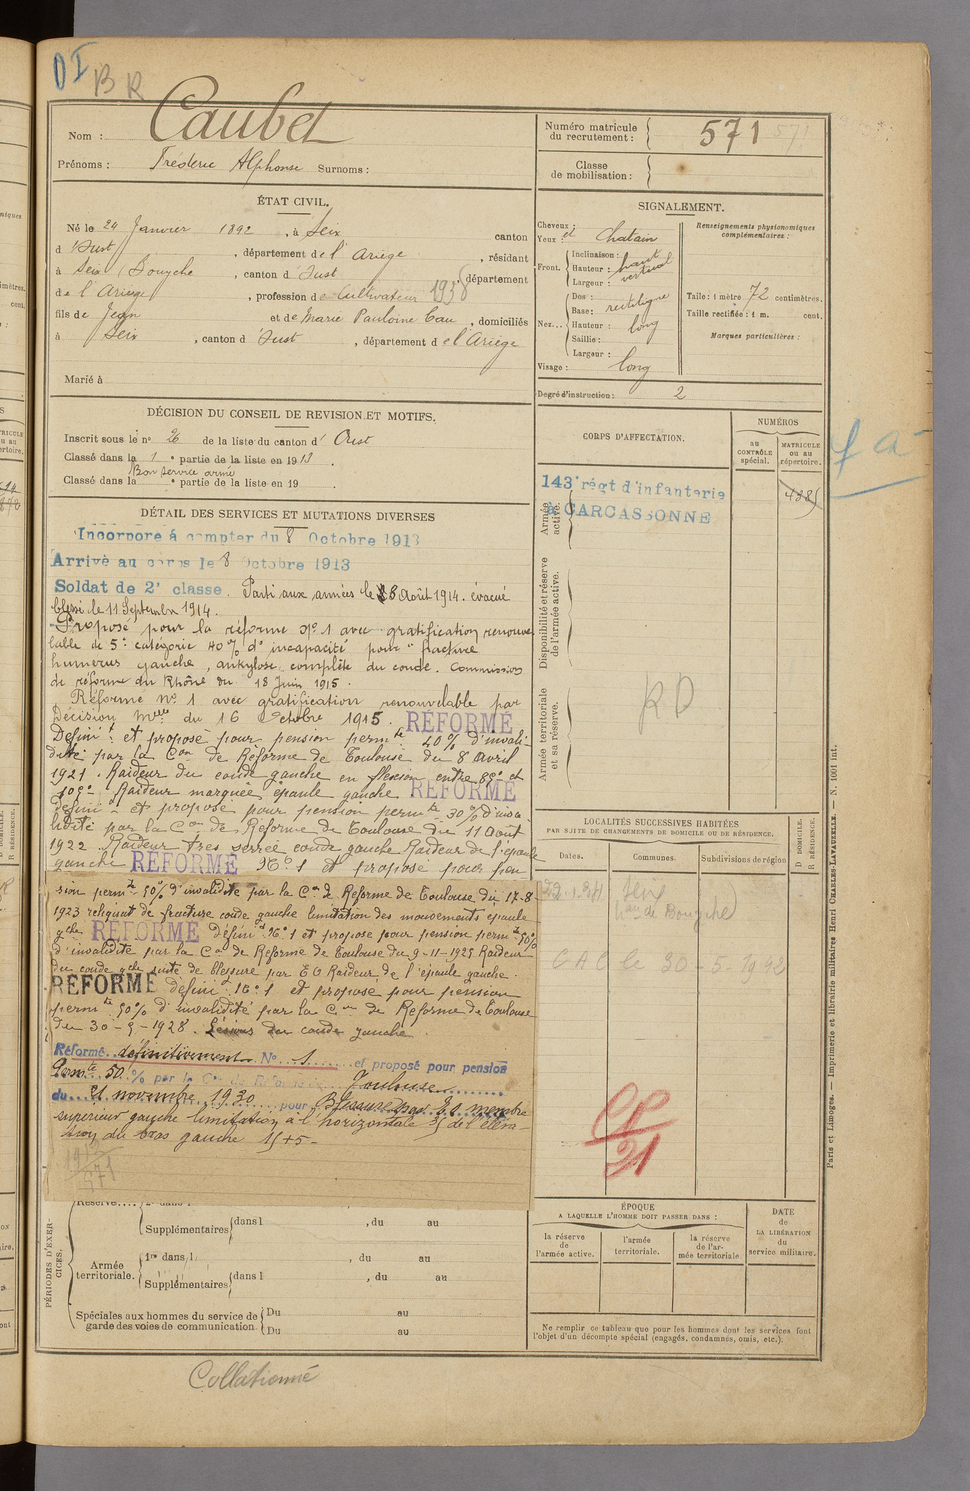 DI
BR
Nom : Caubet
Prénoms : Fréderic Alphonse Surnoms :
Numéro matricule du recrutement : 571
Classe de mobilisation :
ÉTAT CIVIL.
Né le 24 Janvier 1892, à Seix canton
d'Oust, département de l'Ariège, résidant
à Seix (Bouyche, canton d'Oust, département
de l'Ariège, profession de Cultivateur 1938
fils de Jean et de Marie Pauloine Cau, domiciliés
à Seix, canton d'Oust, département de l'Ariège
Marié à
SIGNALEMENT.
Cheveux :
Yeux : et chatain
Front. Inclinaison :
Hauteur : haut
Largeur : vertical
Nez... Dos :
Base : rectiligne
Hauteur : long
Saillie :
Largeur :
Visage : long
Renseignements physionomiques complémentaires :
Taille : 1 mètre 72 centimètres.
Taille rectifiée : 1 m. cent.
Marques particulières :
Degré d'instruction : 2
DÉCISION DU CONSEIL DE REVISION ET MOTIFS.
Inscrit sous le n° 26 de la liste du canton d'Oust
Classé dans la 1e partie de la liste en 1913.
Bon service armé
Classé dans la e partie de la liste en 19
DÉTAIL DES SERVICES ET MUTATIONS DIVERSES
Incorporé à compter du 8 Octobre 1913
Arrivé au corps le 8 Octobre 1913
Soldat de 2e classe. Parti aux armées le 8 Août 1914. évacué
blessé le 11 Septembre 1914.
Proposé pour la réforme N° 1 avec gratification renouve
lable de 5e catégorie 40% d'incapacité pour "fracture
humérus gauche, ankylose complète du coude. Commission
de réforme du Rhône du 18 Juin 1915.
Réformé N° 1 avec gratification renouvelable par
Décision Melle du 16 Octobre 1915. RÉFORMÉ
Défini f et proposé pour pension permte 40% d'invali-
dité par la Con de Réforme de Toulouse du 8 Avril
1921. Raideur du coude gauche en flexion entre 85° et
105° - Raideur marquée épaule gauche RÉFORMÉ
défini f et proposé pour pension permte 30% d'inva-
lidité par la Con de Réforme de Toulouse du 11 Août
1922. Raideur très serrée coude gauche Raideur de l'épaule
gauche RÉFORMÉ N° 1 et proposé pour pen
sion permte 50% d'invalidité par la Con de Réforme de Toulouse du 17-8
1923 reliquat de fracture coude gauche limitation des mouvements épaule
gche RÉFORMÉ défini f N° 1 et proposé pour pension permte 50%
d'invalidité par la Con de Réforme de Toulouse du 9-11-1925 Raideur
du coude gche suite de blessure par EO Raideur de l'épaule gauche.
RÉFORMÉ défini f N° 1 et proposé pour pension
permte 50% d'invalidité par la Con de Reforme de Toulouse
du 30-5-1928. Lésions du coude gauche.
Réformé définitivement N° 1 et proposé pour pension
Permte 50% par la Con de Réforme de Toulouse
du 21 novembre 1930 pour Blessure membre
supérieur gauche limitation à l'horizontale de l'éléva-
tion du bras gauche 15+5-
1912
571
CORPS D'AFFECTATION.
NUMÉROS
au CONTRÔLE spécial.
MATRICULE ou au répertoire.
Armée active.
143e régt d'infanterie
à CARCASSONNE
4885
Disponibilité et réserve de l'armée active.
Armée territoriale et sa réserve.
RD
LOCALITÉS SUCCESSIVES HABITÉES
PAR SUITE DE CHANGEMENTS DE DOMICILE OU DE RÉSIDENCE.
Dates. Communes. Subdivisions de région
D DOMICILE.
R RÉSIDENCE.
Seix
CAC le 30-5-1942
21
ÉPOQUE
A LAQUELLE L'HOMME DOIT PASSER DANS :
la réserve de l'armée active.
l'armée territoriale.
la réserve de l'armée territoriale.
DATE de LA LIBÉRATION du service militaire.
Ne remplir ce tableau que pour les hommes dont les services font
l'objet d'un décompte spécial (engagés, condamnés, omis, etc.).
PÉRIODES D'EXERCICES.
Réserve.... 2e dans l
Supplémentaires dans l , du au
Armée territoriale. 1re dans l , du au
Supplémentaires dans l , du au
Spéciales aux hommes du service de garde des voies de communication. Du au
Du au
Collationné
Paris et Limoges. — Imprimerie et librairie militaires Henri CHARLES-LAVAUZELLE. — N. 1001 int.